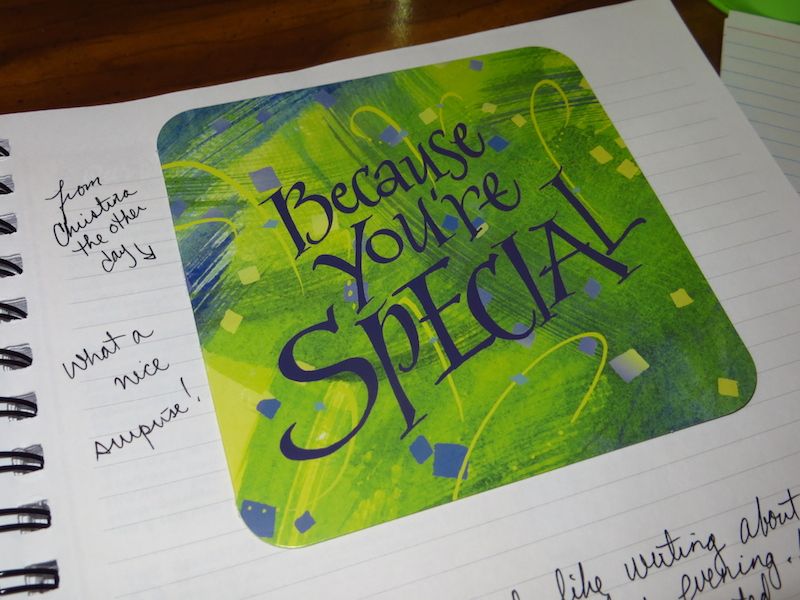 from
Christina
the other
day
What a
nice
surprise!
Because
You're
SPECIAL
like writing about
evening.